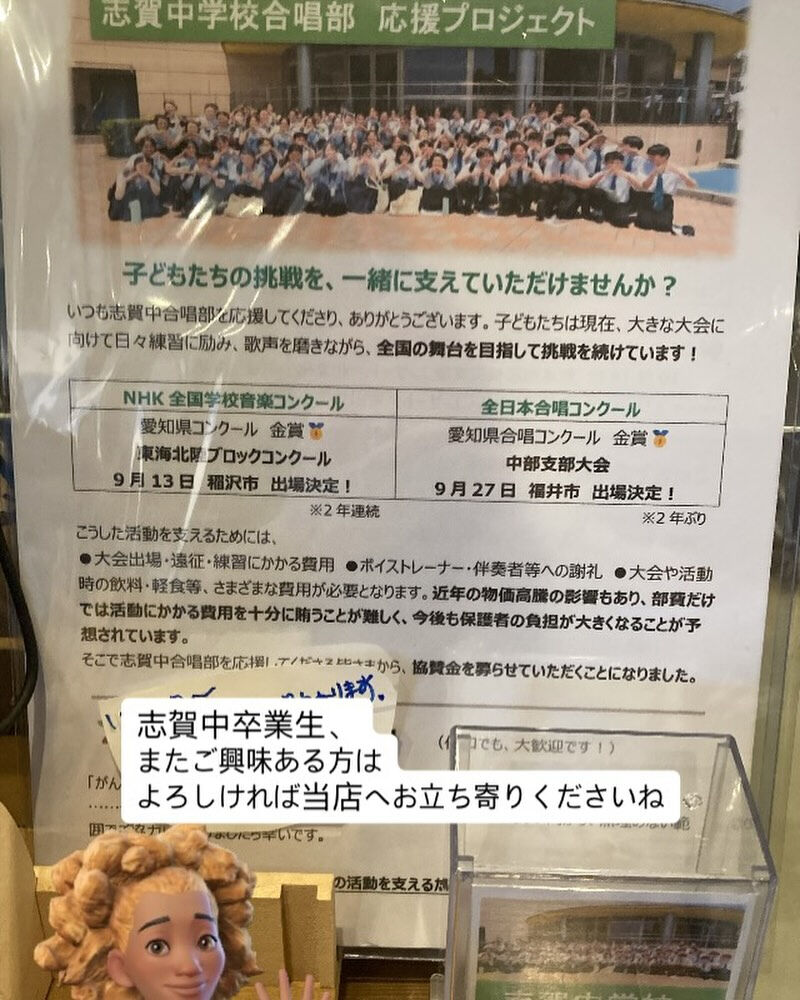 志賀中学校合唱部 応援プロジェクト
子どもたちの挑戦を、一緒に支えていただけませんか？
いつも志賀中合唱部を応援してくださり、ありがとうございます。子どもたちは現在、大きな大会に
向けて日々練習に励み、歌声を磨きながら、全国の舞台を目指して挑戦を続けています！
NHK 全国学校音楽コンクール
愛知県コンクール 金賞🏅
東海北陸ブロックコンクール
9月13日 稲沢市 出場決定！
※2年連続
全日本合唱コンクール
愛知県合唱コンクール 金賞🏅
中部支部大会
9月27日 福井市 出場決定！
※2年ぶり
こうした活動を支えるためには、
●大会出場・遠征・練習にかかる費用 ●ボイストレーナー・伴奏者等への謝礼 ●大会や活動
時の飲料・軽食等、さまざまな費用が必要となります。近年の物価高騰の影響もあり、部費だけ
では活動にかかる費用を十分に賄うことが難しく、今後も保護者の負担が大きくなることが予
想されています。
そこで志賀中合唱部を応援してくださる皆さまから、協賛金を募らせていただくことになりました。
でも、大歓迎です！）
志賀中卒業生、
またご興味ある方は
よろしければ当店へお立ち寄りくださいね
「がん
の活動を支えるた